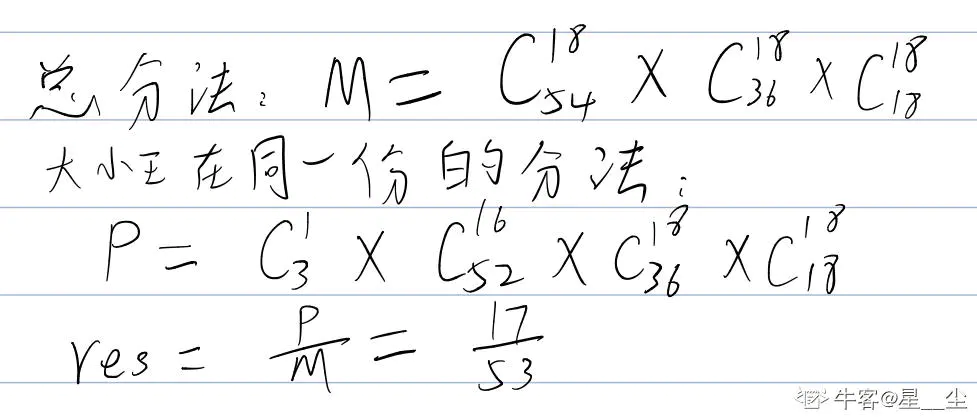 总分法: M = C₅₄¹⁸ × C₃₆¹⁸ × C₁₈¹⁸
大小王在同一份的分法:
P = C₃¹ × C₅₂¹⁶ × C₃₆¹⁸ × C₁₈¹⁸
res = P/M = 17/53
牛客@星__尘